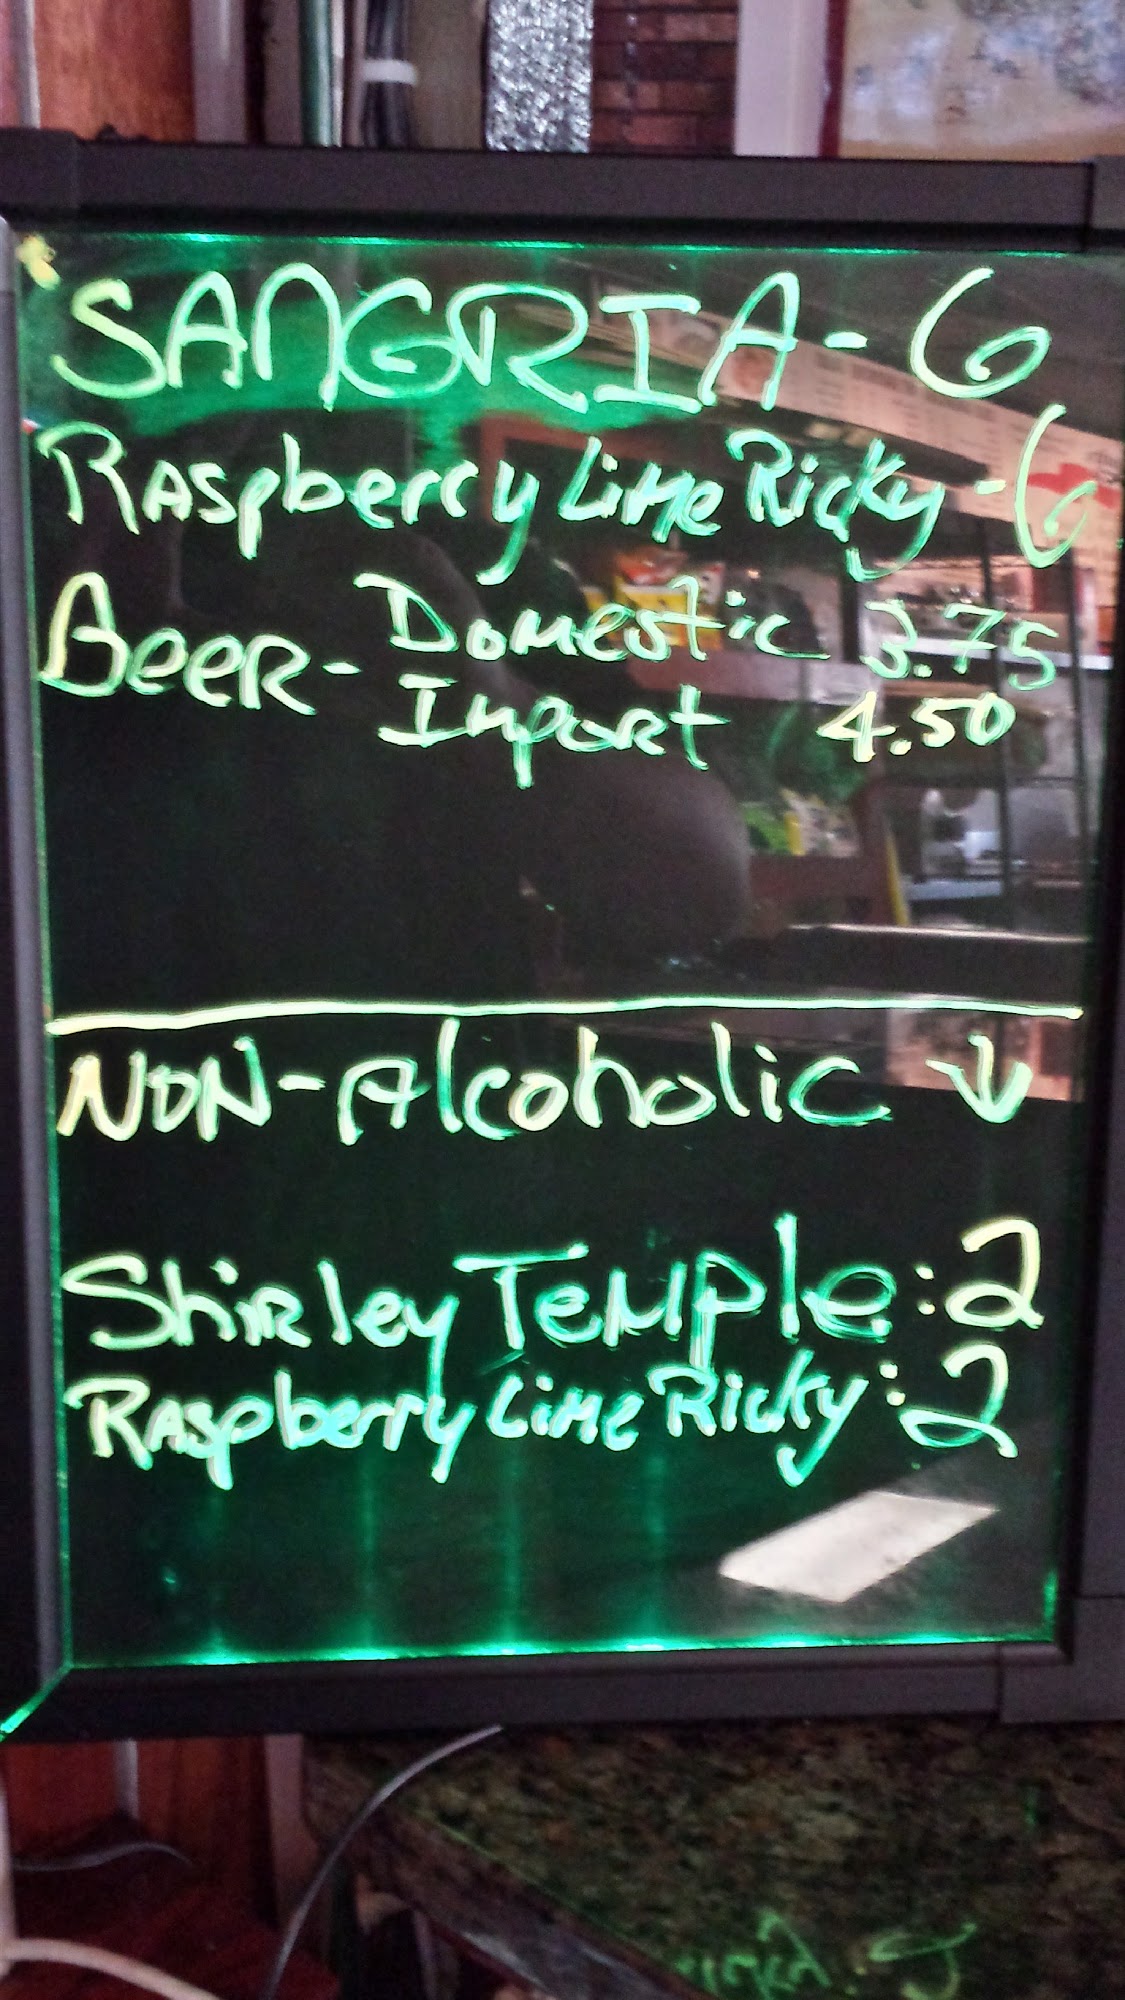 SANGRIA - 6
Raspberry Lime Ricky - 6
Beer - Domestic 3.75
Import 4.50
NON-Alcoholic ↓
Shirley Temple: 2
Raspberry Lime Ricky: 2